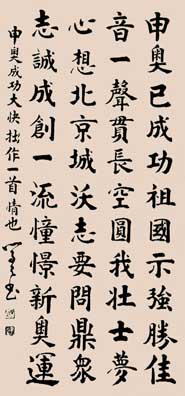 申奧已成功祖國示強勝佳
音一聲貫長空圓我壯士夢
心想北京城沃志要問鼎衆
志誠成創一流憧憬新奧運
申奧成功大快拙作一首情也